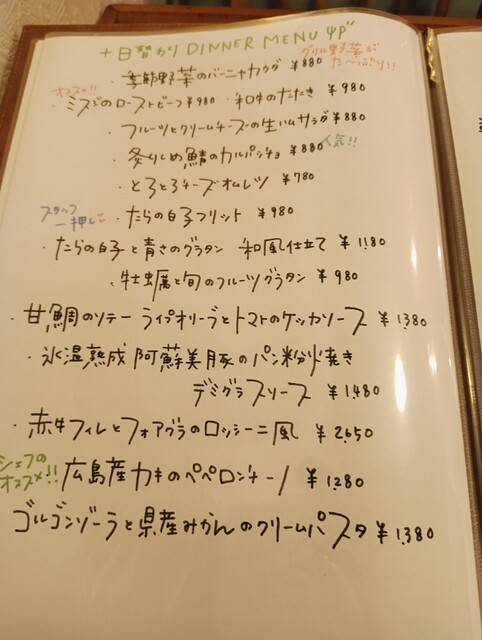 日替わり DINNER MENU
グリル野菜が
た〜っぷり!!
・季節野菜のバーニャカウダ ¥880
オススメ!!
・ミスジのローストビーフ ¥980 ・和牛のたたき ¥980
・フルーツとクリームチーズの生ハムサラダ ¥880
・炙りしめ鯖のカルパッチョ ¥880 人気!!
・とろとろチーズオムレツ ¥780
スタッフ
一押し
・たらの白子フリット ¥980
・たらの白子と青さのグラタン 和風仕立て ¥1,180
・牡蠣と旬のフルーツグラタン ¥980
・甘鯛のソテー ライプオリーブとトマトのケッカソース ¥1,380
・氷温熟成 阿蘇美豚のパン粉焼き
デミグラスソース ¥1,480
・赤牛フィレとフォアグラのロッシーニ風 ¥2,650
シェフの
オススメ!!
広島産カキのペペロンチーノ ¥1,280
ゴルゴンゾーラと県産みかんのクリームパスタ ¥1,380